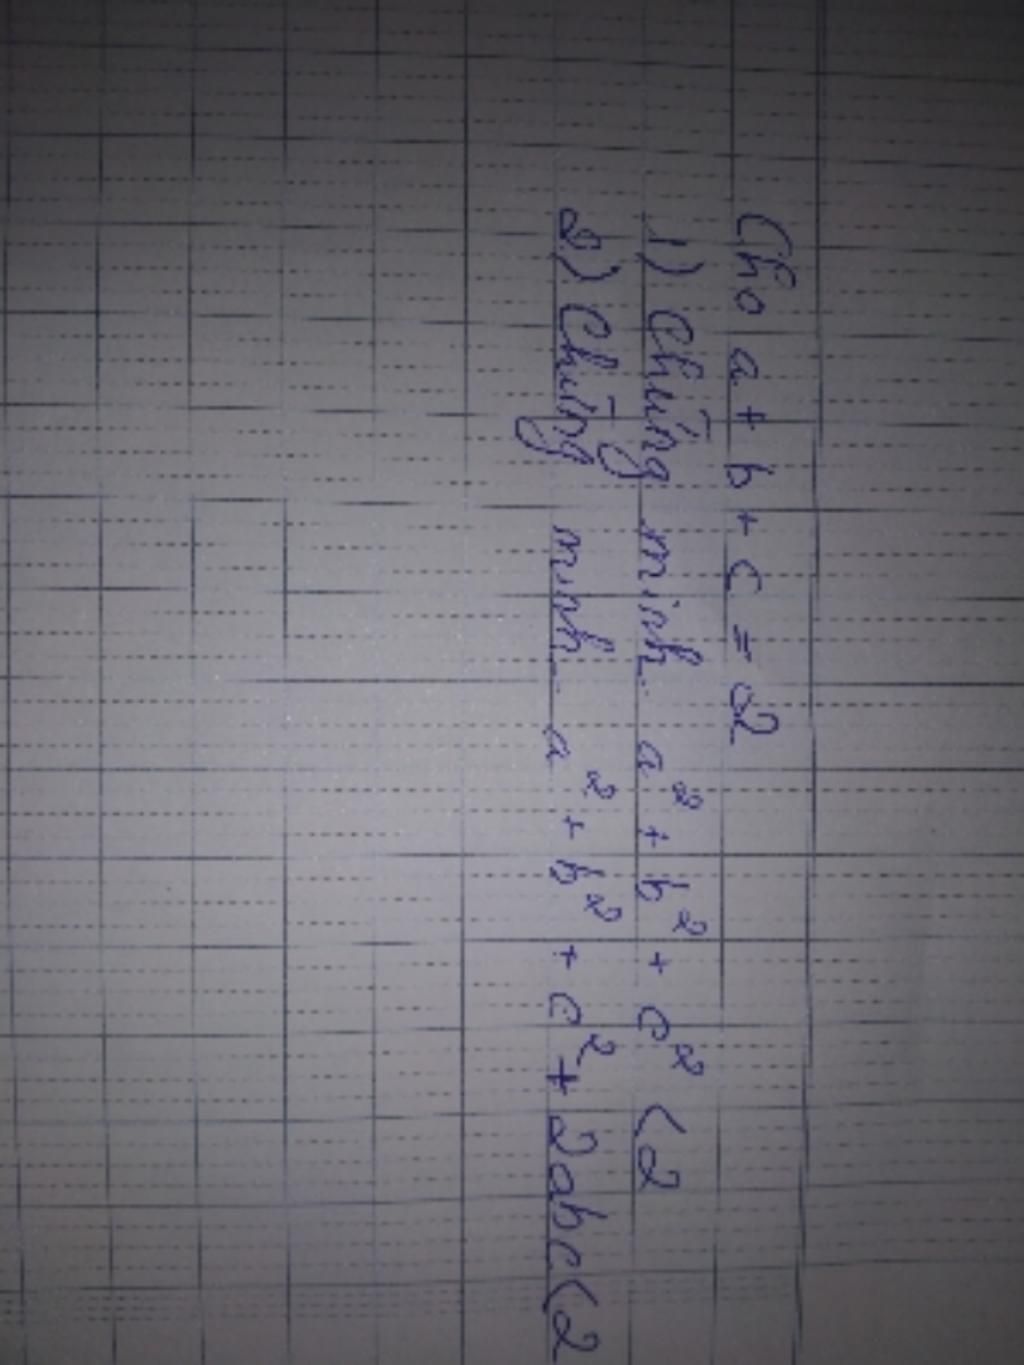 Cho a + b + c = 2
1) Chứng minh a² + b² + c² < 2
2) Chứng minh a² + b² + c² + 2abc < 2